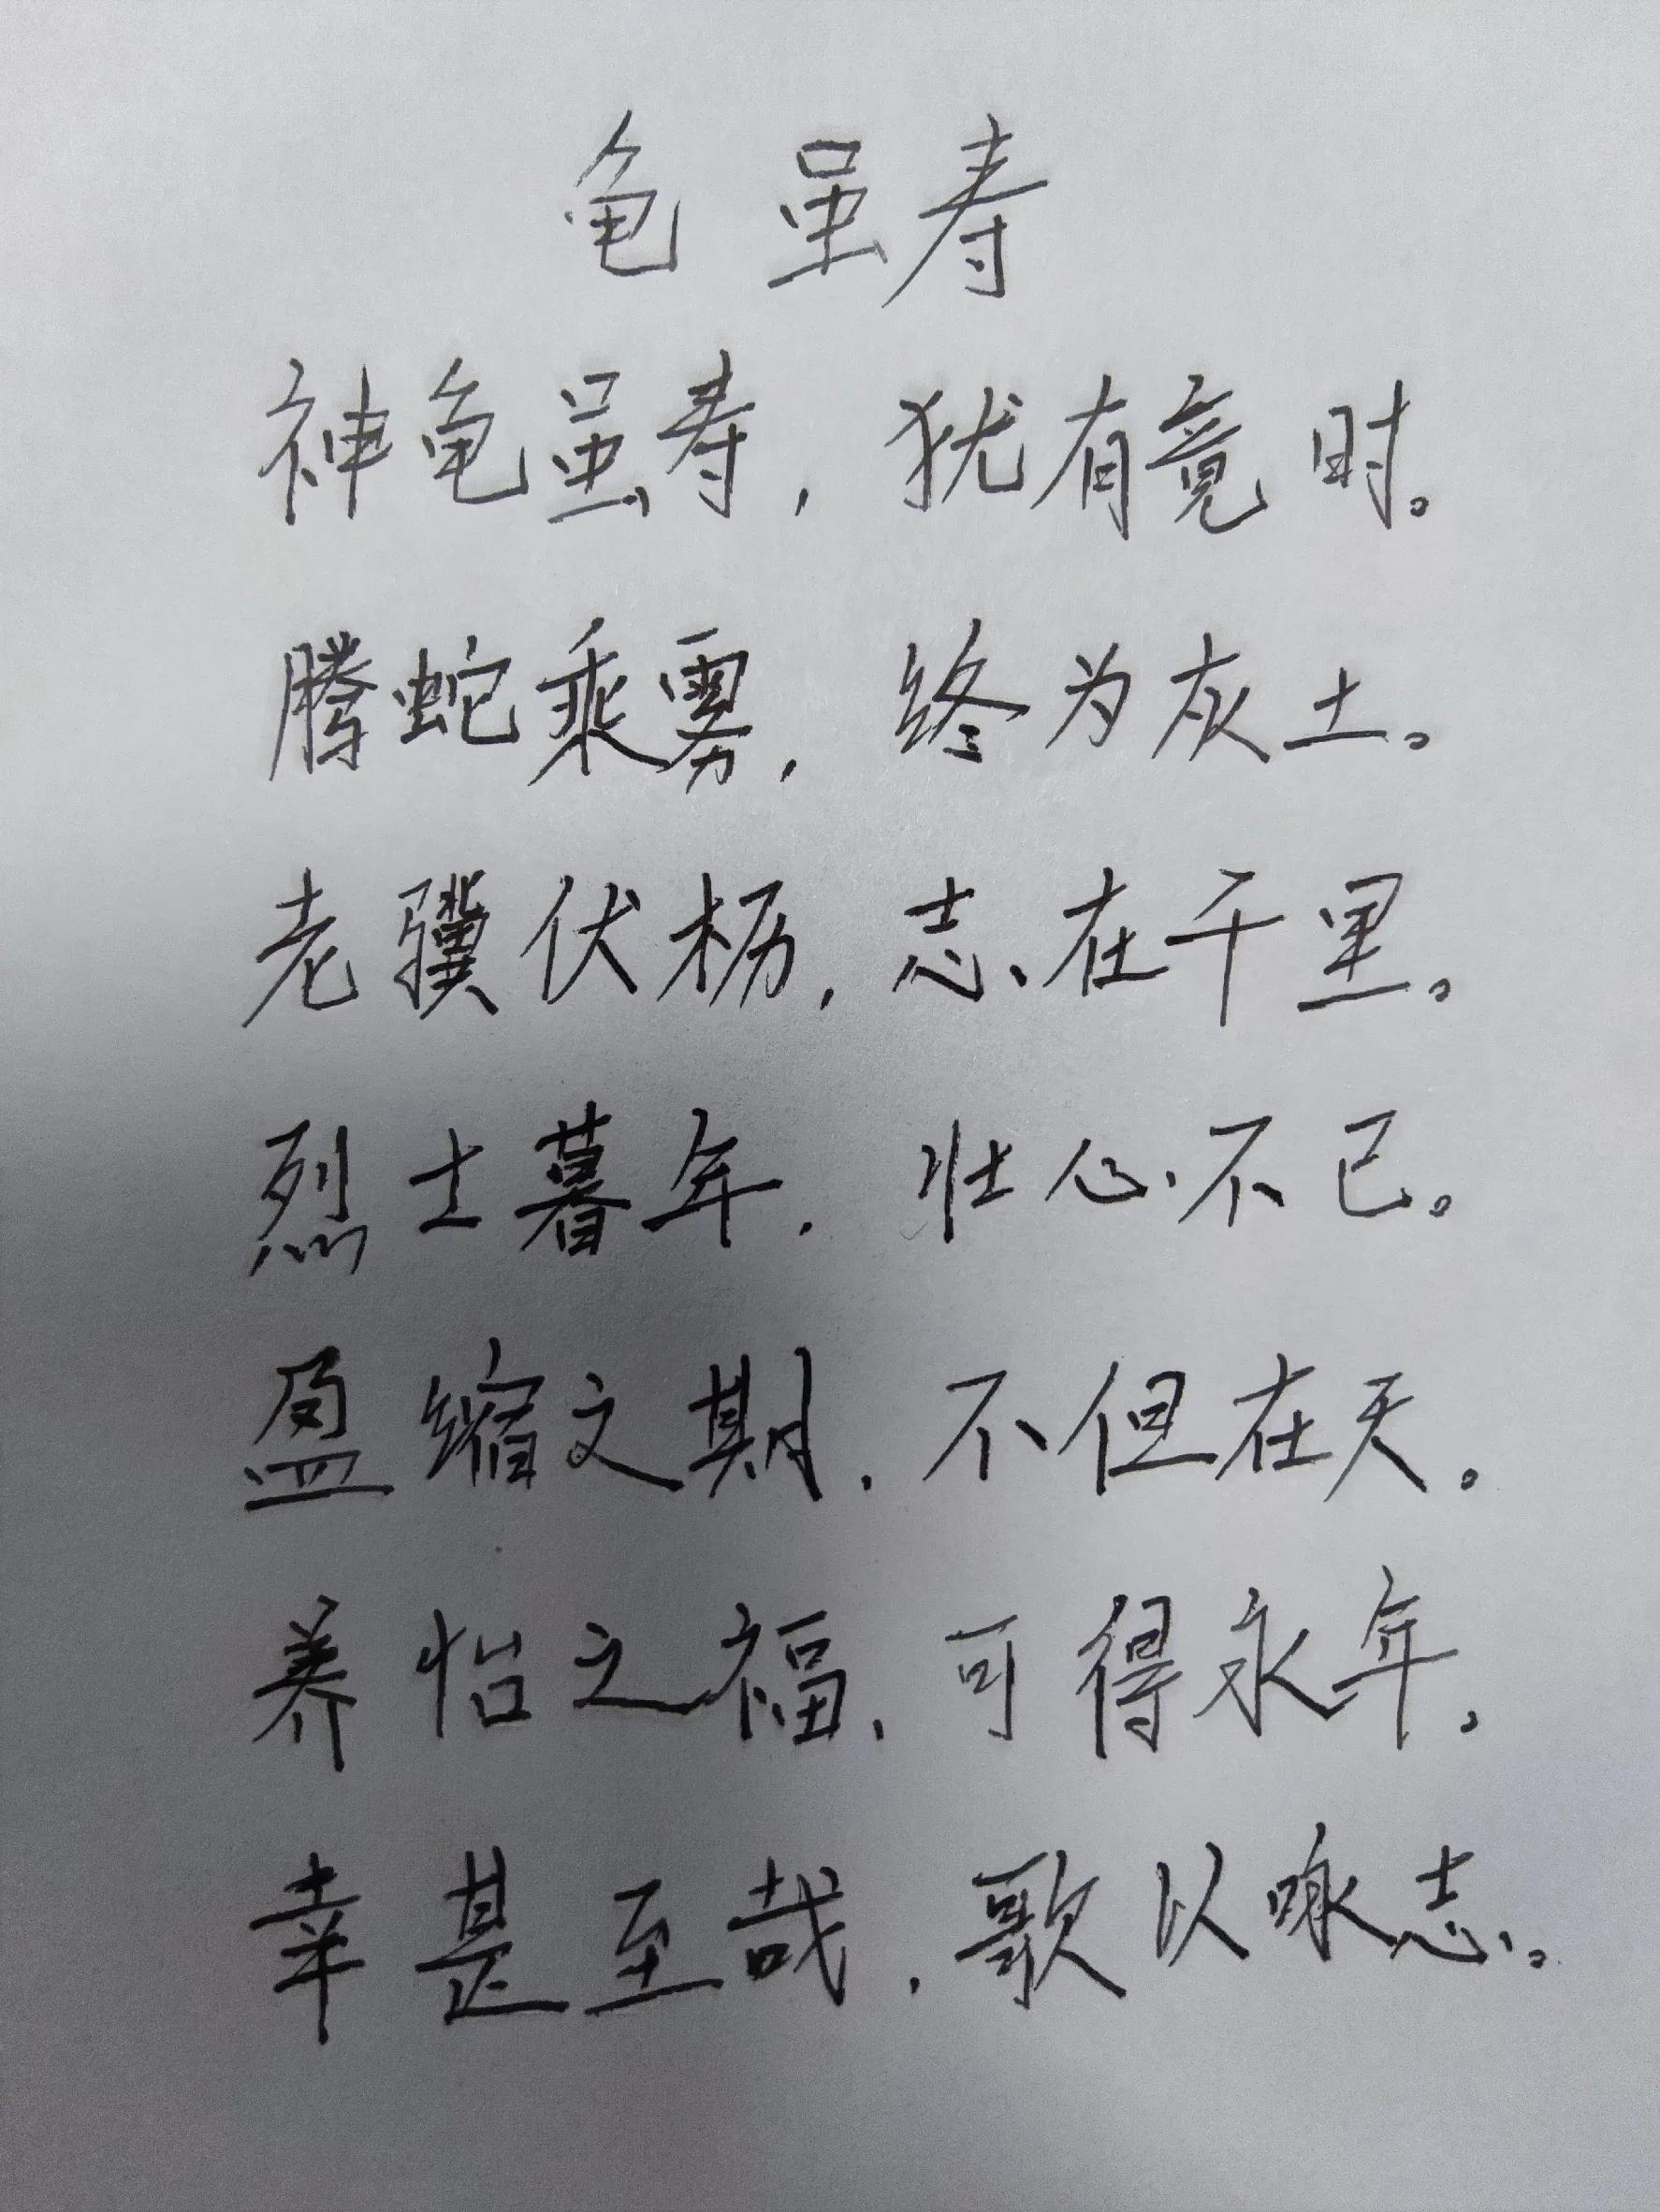 龟虽寿
神龟虽寿，犹有竟时。
腾蛇乘雾，终为灰土。
老骥伏枥，志在千里。
烈士暮年，壮心不已。
盈缩之期，不但在天。
养怡之福，可得永年。
幸甚至哉，歌以咏志。